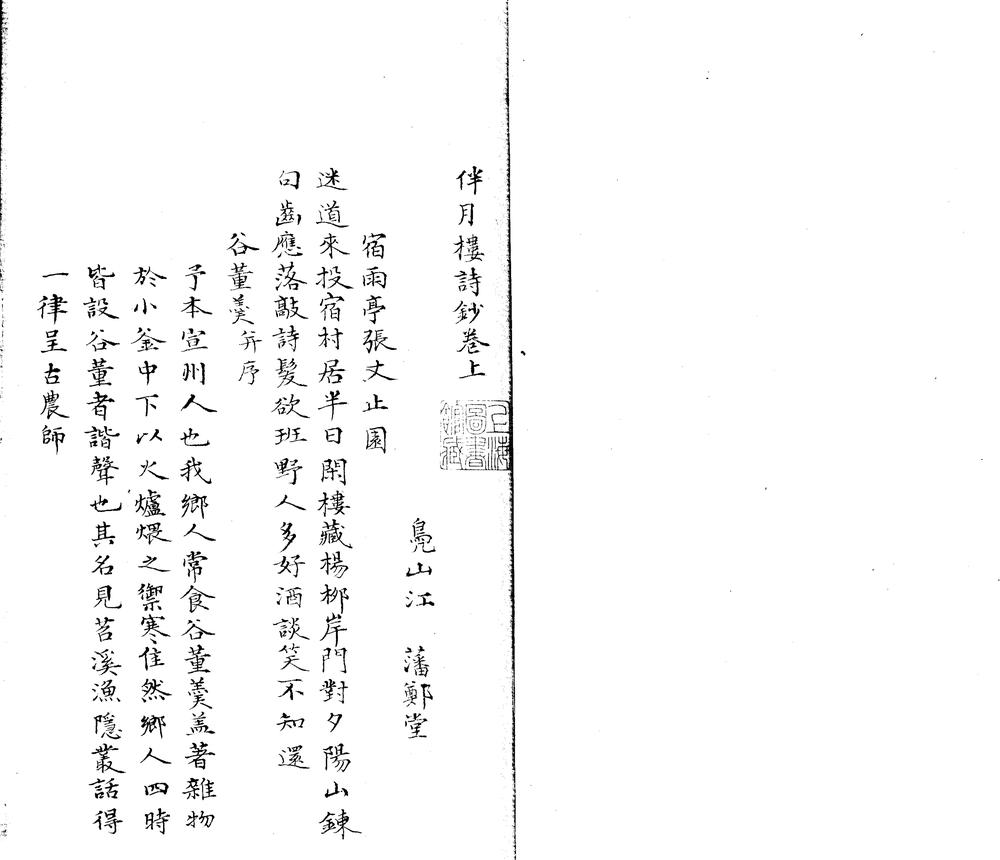 伴月樓詩鈔卷上
上海圖書館藏
鳧山江　藩鄭堂
宿雨亭張丈止園
迷道來投宿村居半日閑樓藏楊栁岸門對夕陽山鍊
句齒應落敲詩髮欲班野人多好酒談笑不知還
谷董羹并序
予本宣州人也我鄉人常食谷董羹盖著雜物
於小釜中下以火爐煨之禦寒佳然鄉人四時
皆設谷董者諧聲也其名見苕溪漁隱叢話得
一律呈古農師